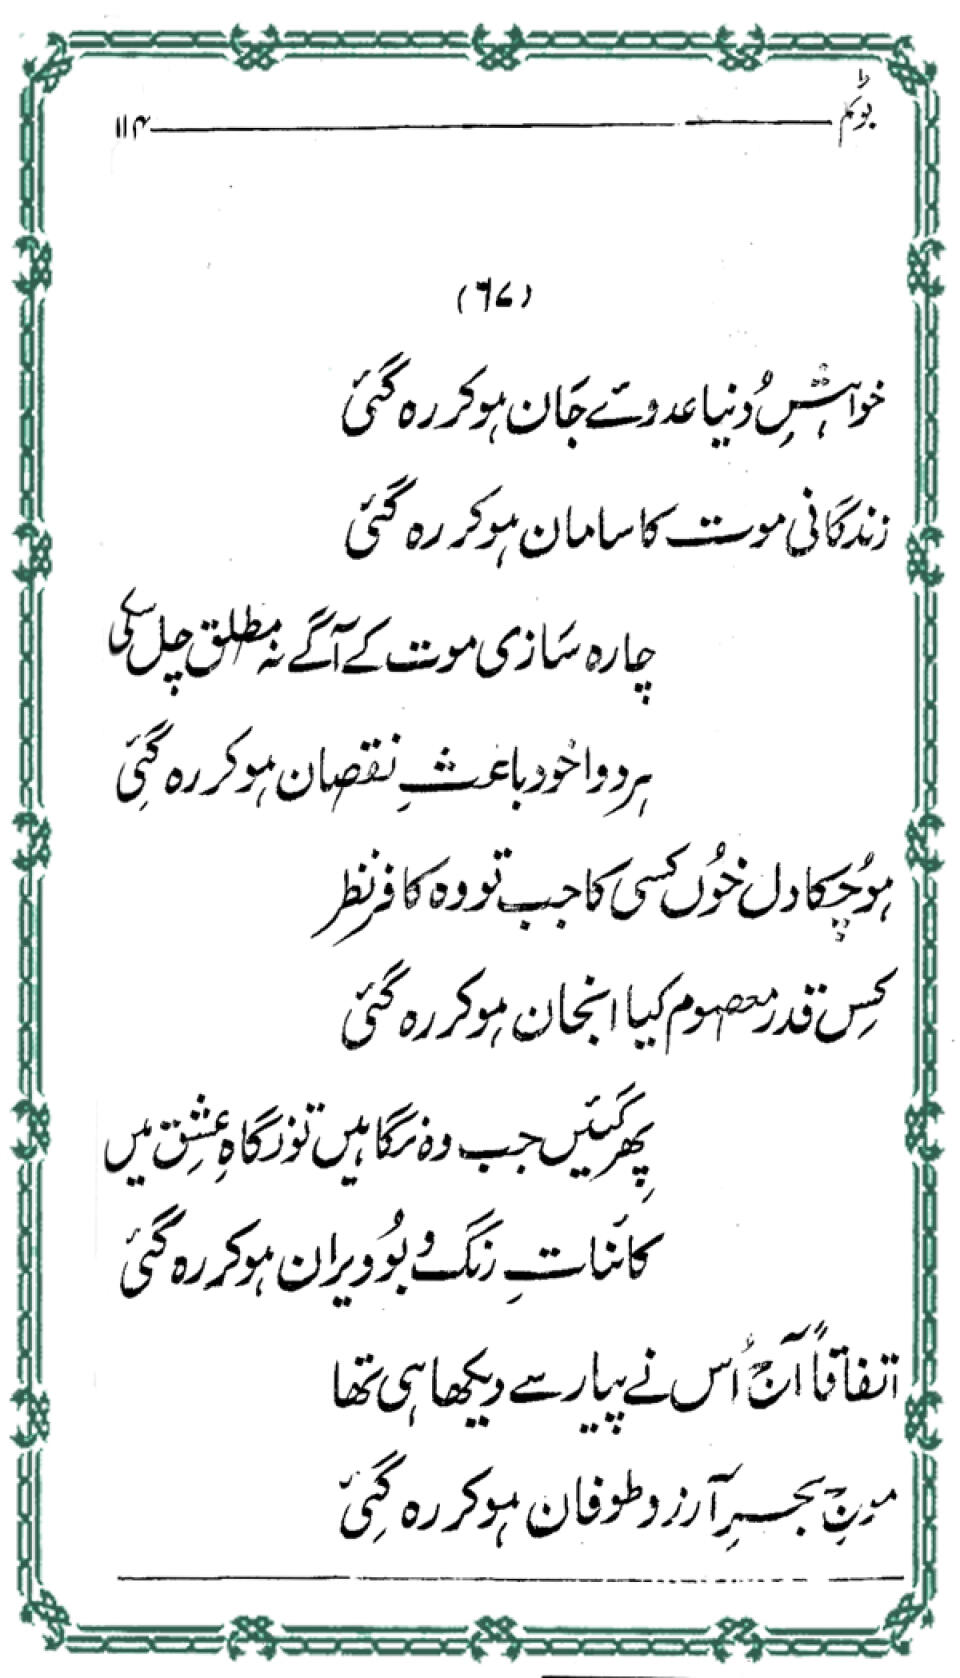 ۱۱۴
(۶۷)
خواہشِ دُنیا عدوئے جَان ہوکر رہ گئی
زندگانی موت کا سامان ہوکر رہ گئی
چارہ سَازی موت کے آگے نہ مطلق چل سکی
ہر دوا خود باعثِ نقصان ہوکر رہ گئی
ہوچُکا دل خُوں کسی کا جب تو وہ کافر نظر
کِس قدر معصوم کیا انجان ہوکر رہ گئی
پِھر گئیں جب وہ نگاہیں تو نگاہِ عِشق میں
کائناتِ رنگ و بُو ویران ہوکر رہ گئی
اتفاقاً آج اُس نے پیار سے دیکھا ہی تھا
موجِ بحرِ آرزو طوفان ہوکر رہ گئی